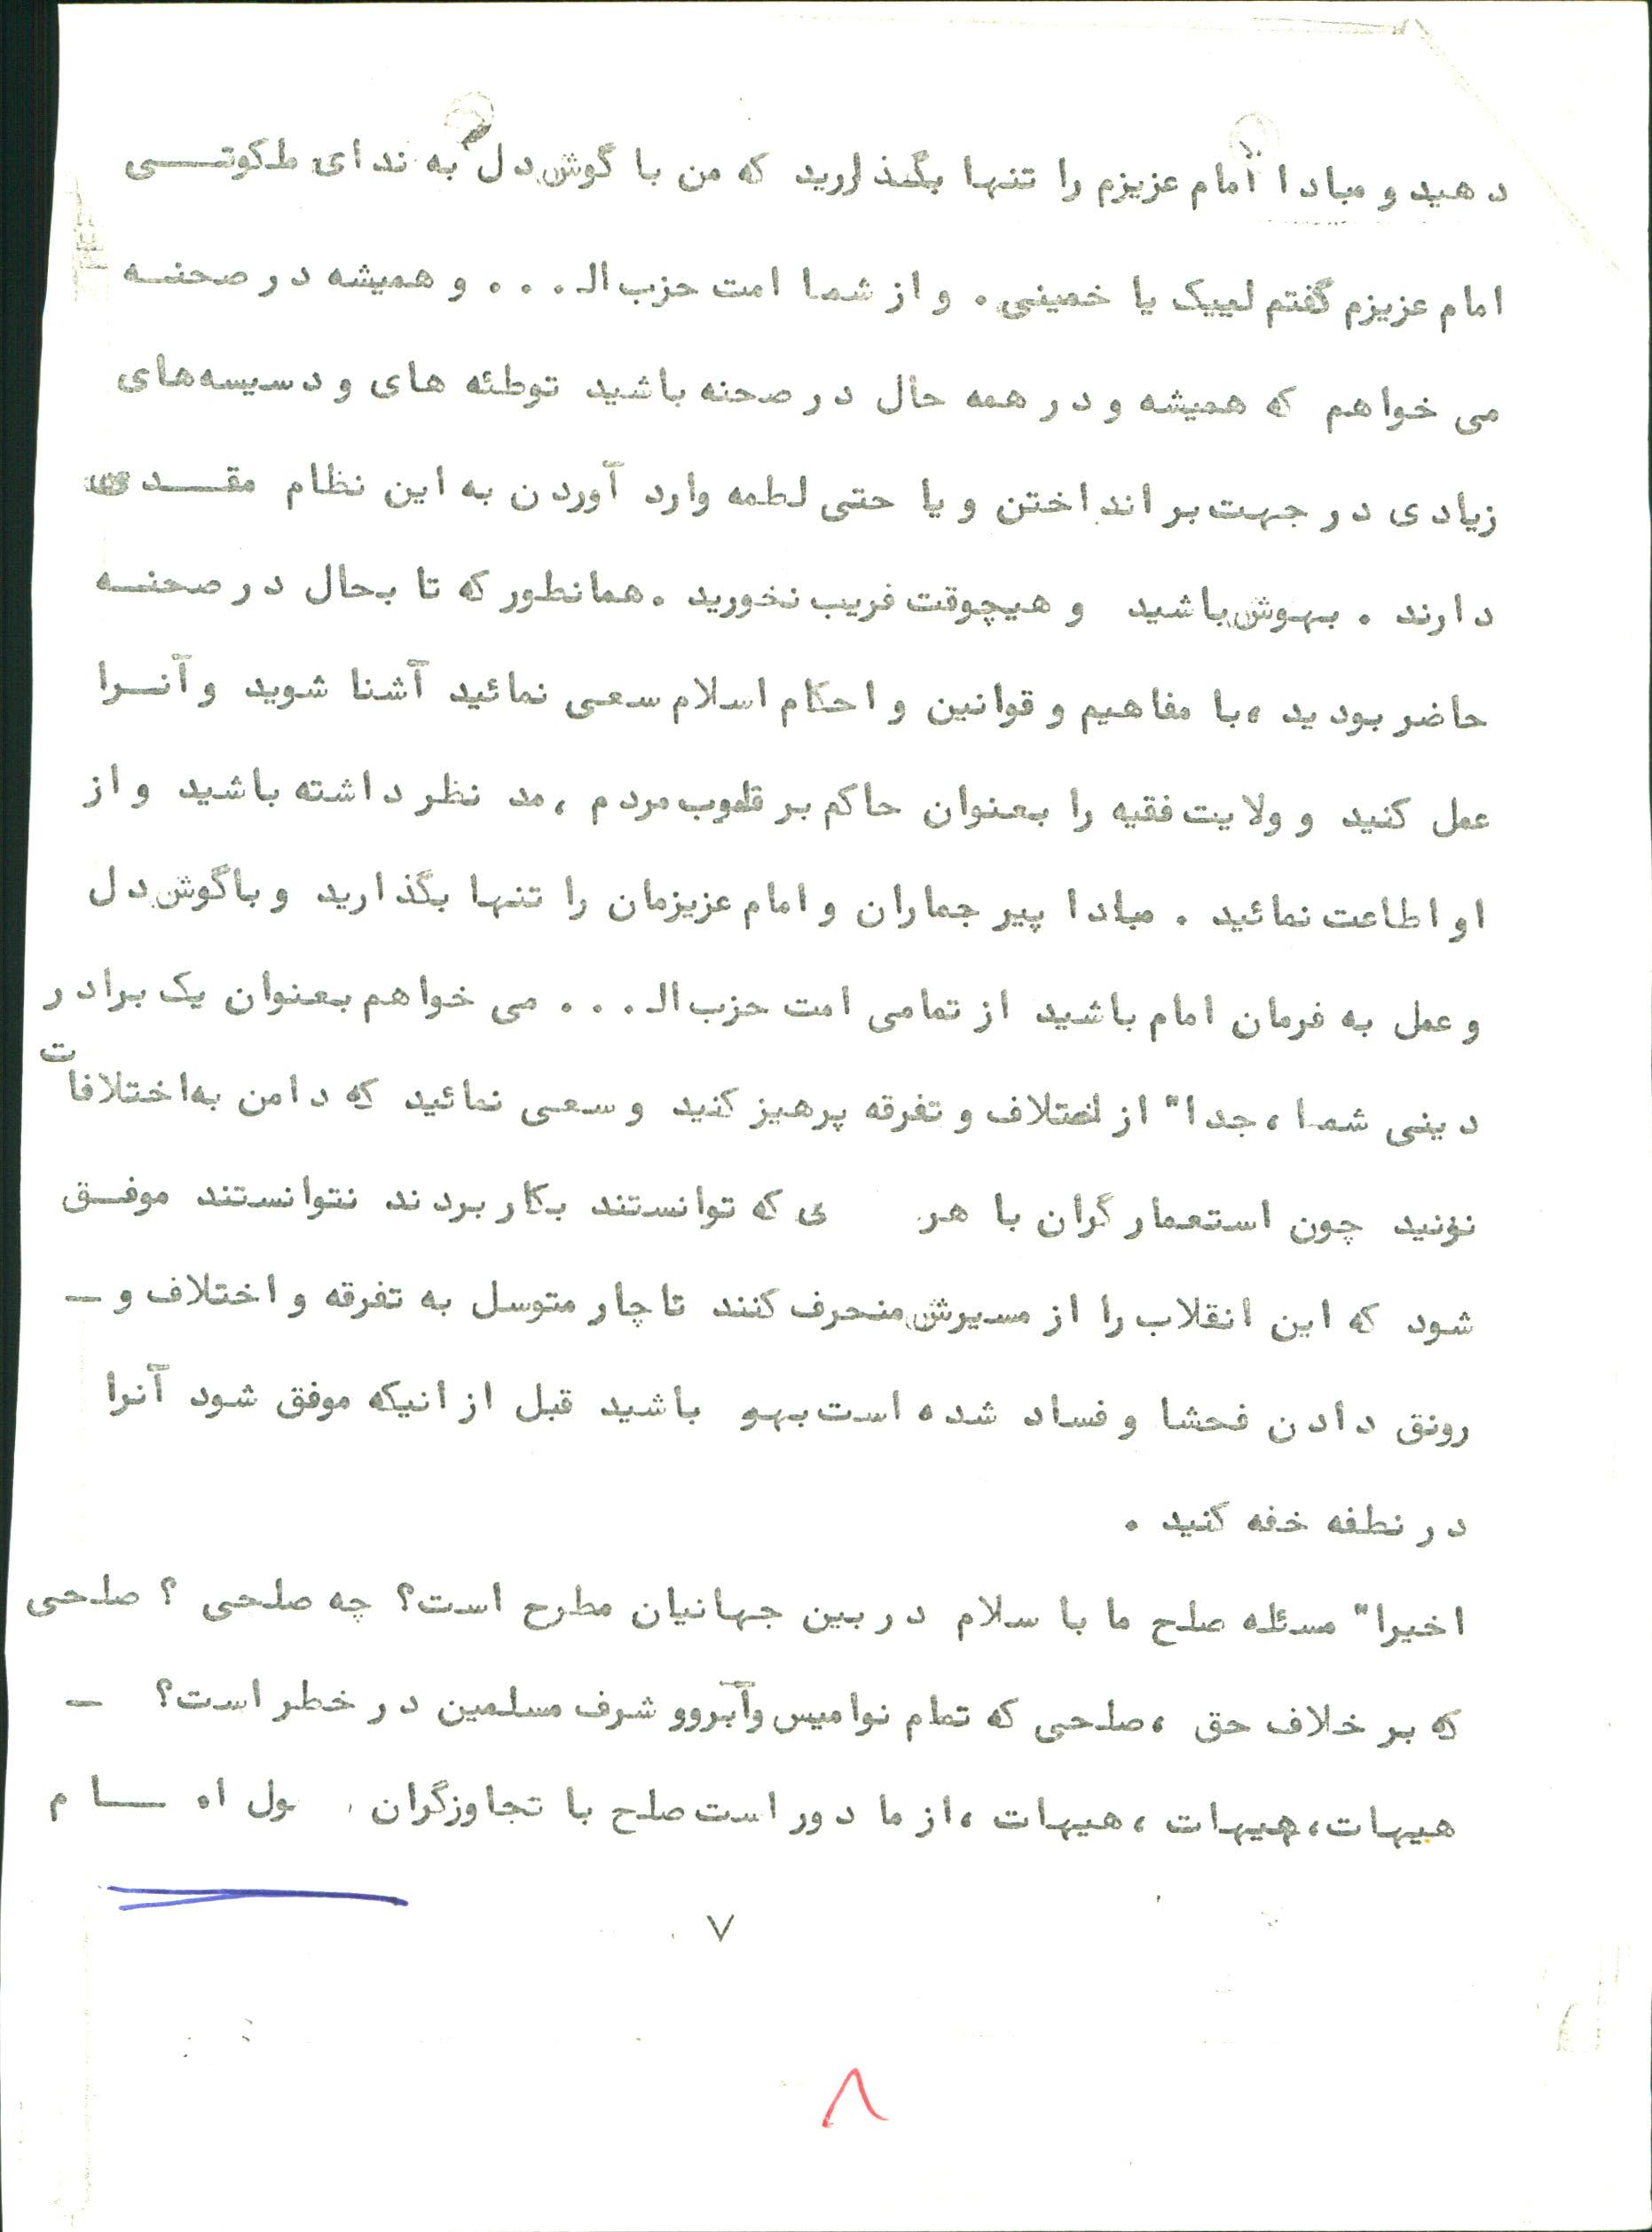 دهید و مبادا امام عزیزم را تنها بگذارید که من با گوش دل به ندای ملکوتـــی
امام عزیزم گفتم لبیک یا خمینی. و از شما امت حزب الـ . . . و همیشه در صحنـه
می خواهم که همیشه و در همه حال در صحنه باشید توطئه های و دسیسه‌های
زیادی در جهت بر انداختن و یا حتی لطمه وارد آوردن به این نظام مقـــدس
دارند . بهوش باشید و هیچوقت فریب نخورید . همانطور که تا بحال در صحنـه
حاضر بودید ، با مفاهیم و قوانین و احکام اسلام سعی نمائید آشنا شوید و آنـرا
عمل کنید و ولایت فقیه را بعنوان حاکم بر قلوب مردم ، مد نظر داشته باشید و از
او اطاعت نمائید . مبادا پیر جماران و امام عزیزمان را تنها بگذارید و با گوش دل
و عمل به فرمان امام باشید از تمامی امت حزب الـ . . . می خواهم بعنوان یک برادر
دینی شما ، جدا" از اختلاف و تفرقه پرهیز کنید و سعی نمائید که دامن به اختلافات
نزنید چون استعمارگران با هر ی که توانستند بکار بردند نتوانستند موفـق
شود که این انقلاب را از مسیرش منحرف کنند تاچار متوسل به تفرقه و اختلاف و ـ
رونق دادن فحشا و فساد شده است بهو باشید قبل از انیکه موفق شود آنرا
در نطفه خفه کنید .
اخیرا" مسئله صلح ما با سلام در بین جهانیان مطرح است؟ چه صلحی ؟ صلحی
که بر خلاف حق ، صلحی که تمام نوامیس وآبروو شرف مسلمین در خطر است؟ ـ
هیهات، هیهات ، هیهات ، از ما دور است صلح با تجاوزگران ول
۷
۸